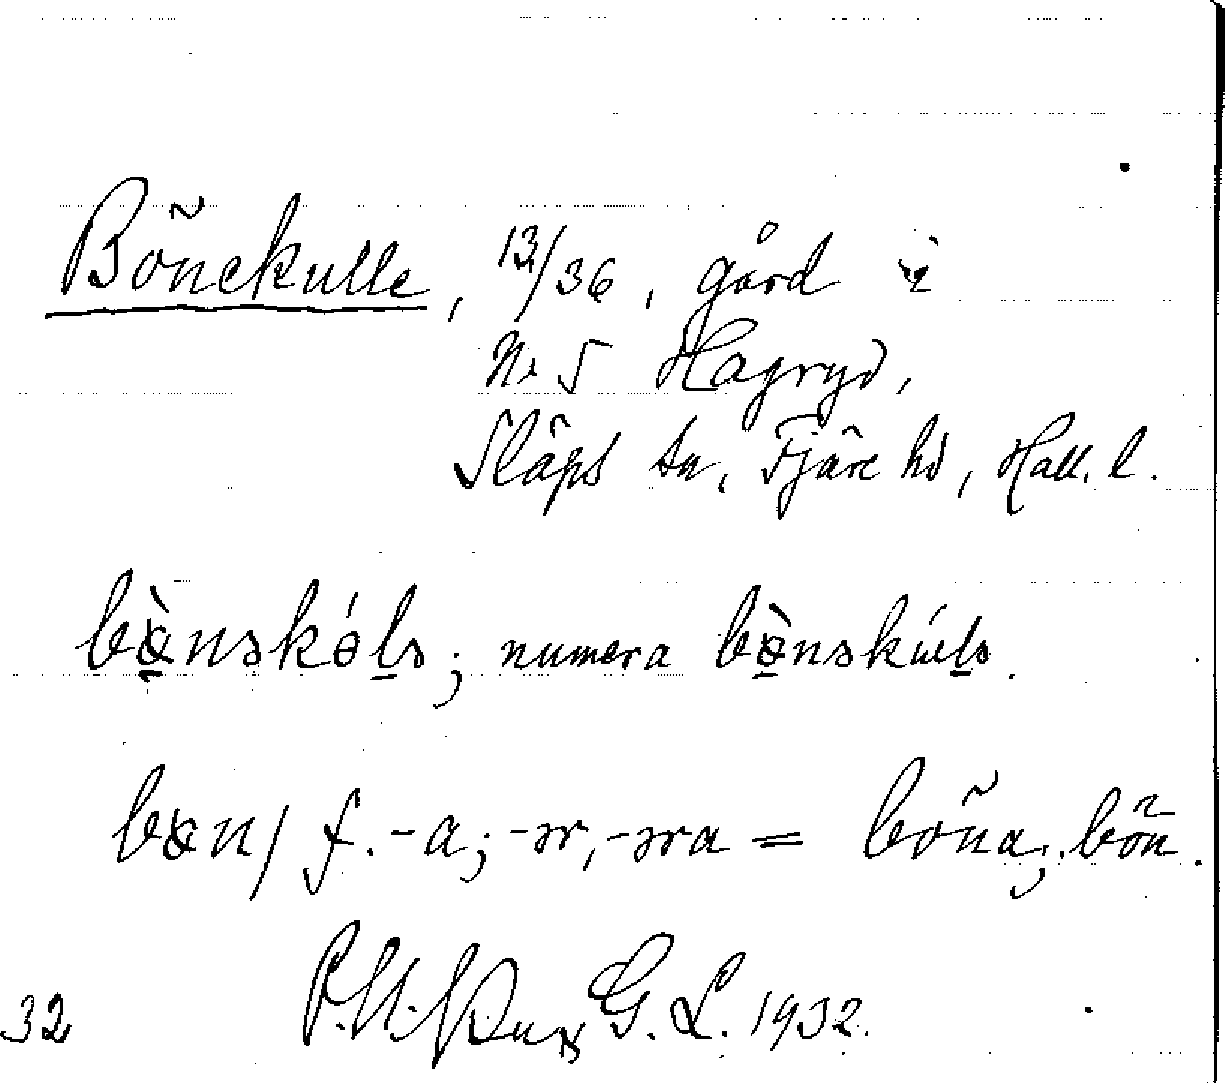 Bönekulle, 13/36, gård i
No 5 Hagryd,
Släps sn, Fjäre hd, Hall. l.
bœ̀nəkóḷə; numera bœ̀nəkúḷə.
bœn/ f. -a; -ər, -əra = böna; bön.
G. L. 1932.
32